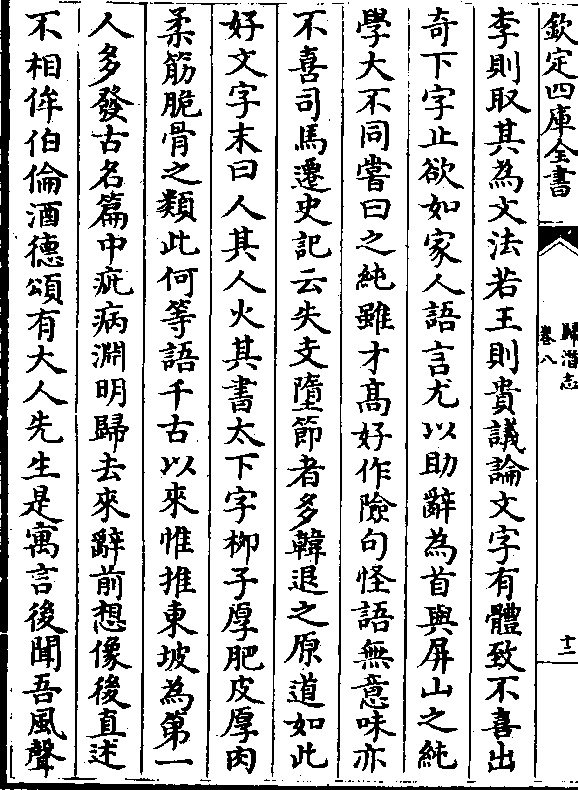 欽定四庫全書
歸潛志
卷八
十二
李則取其為文法若王則貴議論文字有體致不喜出
奇下字止欲如家人語言尤以助辭為首與屏山之純
學大不同嘗曰之純雖才髙好作險句怪語無意味亦
不喜司馬遷史記云失支墮節者多韓退之原道如此
好文字末曰人其人火其書太下字栁子厚肥皮厚肉
柔筋脆骨之類此何等語千古以來惟推東坡為第一
人多發古名篇中疵病淵明歸去來辭前想像後直述
不相侔伯倫酒徳頌有大人先生是寓言後聞吾風聲